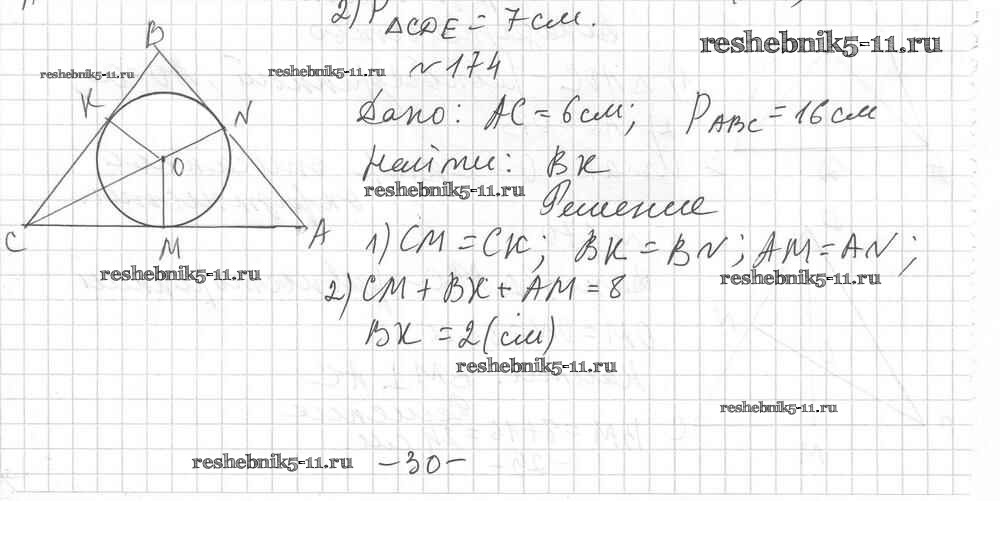 2) P△CDE = 7см.
reshebnik5-11.ru
reshebnik5-11.ru
reshebnik5-11.ru
№174
B
K
N
O
C
M
A
reshebnik5-11.ru
Дано: AC = 6см; PABC = 16см
Найти: BK
reshebnik5-11.ru
Решение
1) CM = CK; BK = BN; AM = AN;
reshebnik5-11.ru
2) CM + BK + AM = 8
BK = 2 (см)
reshebnik5-11.ru
reshebnik5-11.ru
reshebnik5-11.ru
–30–